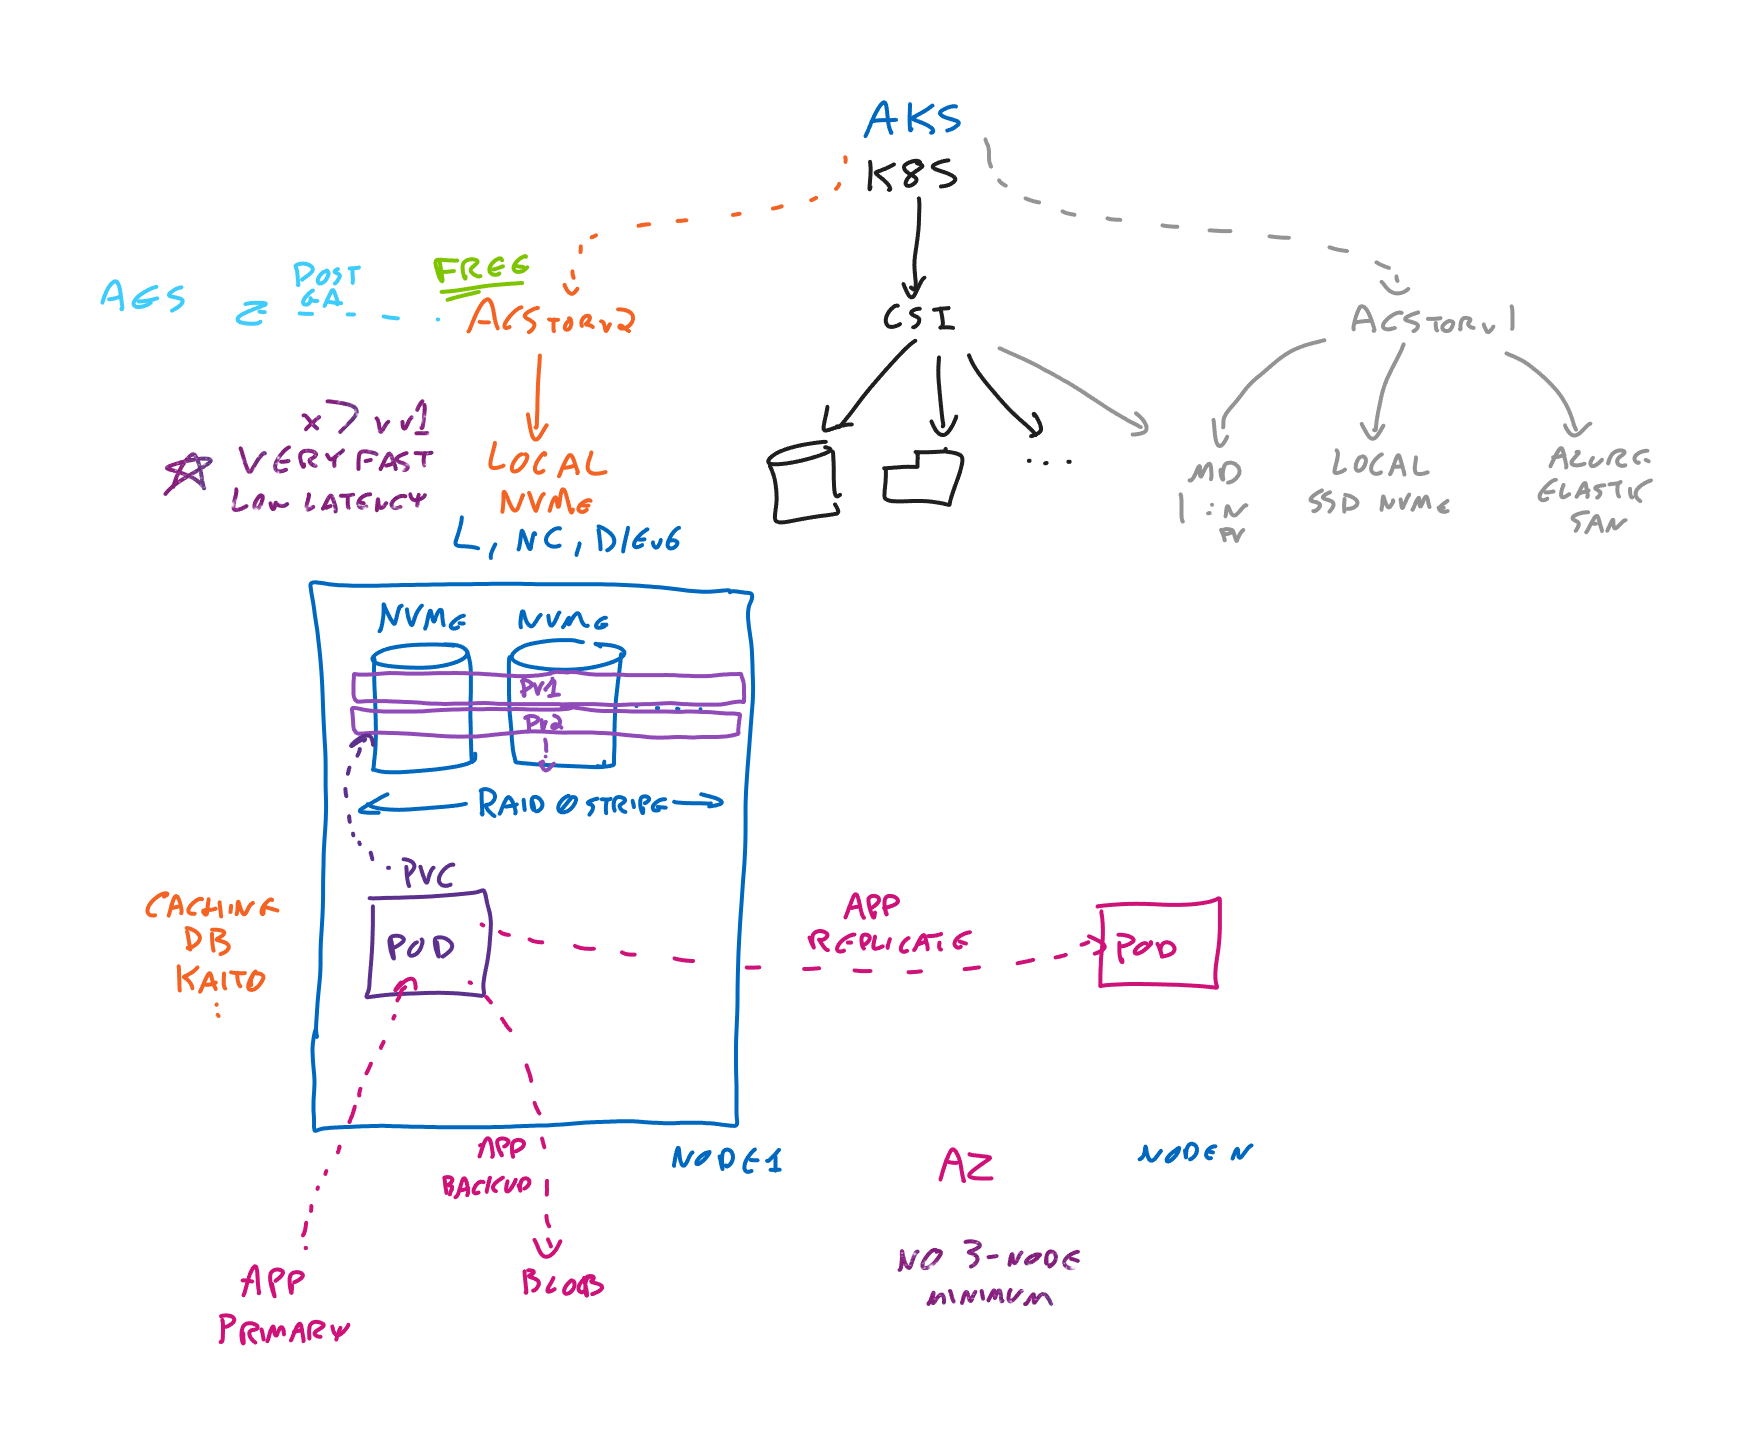 AKS
K8S
FREE
POST
GA
AES
ACSTORv2
CSI
ACSTORv1
x7 v v1
VERY FAST
LOW LATENCY
LOCAL
NVMe
L, NC, D/Ev6
...
MD
1:N
PV
LOCAL
SSD NVMe
AZURE
ELASTIC
SAN
NVMe NVMe
PV1
PV2
RAID 0 STRIPE
PVC
POD
CACHING
DB
KAITO
APP
REPLICATE
POD
APP
BACKUP
NODE1
AZ
NODE N
NO 3-NODE
MINIMUM
APP
PRIMARY
BLOB